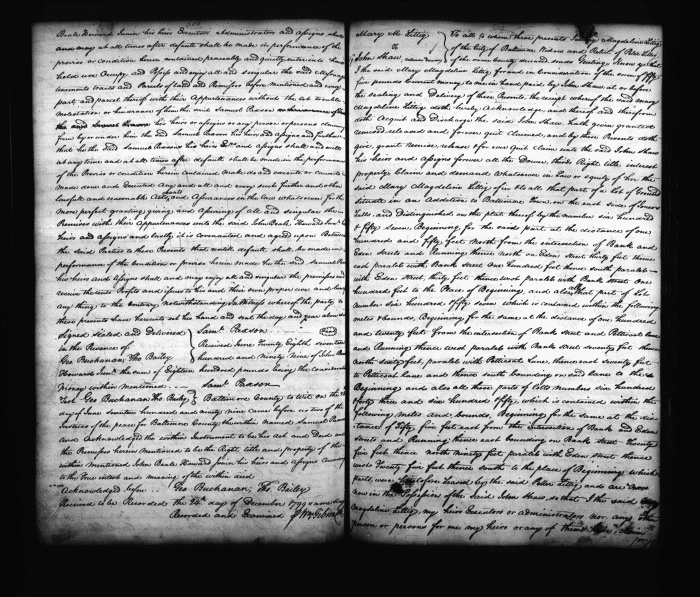 Beale Howard Junior his heirs Executors Administrators and Assigns shall
and may at all times after default shall be made in performance of the
proviso or condition herein contained peaceably and quietly enter into have
hold use Occupy and Possess and enjoy all and singular the said Messuage
tenements tracts and Parcels of land and Premises before mentioned and every
part and parcel thereof with their Appurtenances without the let trouble
molestation or hindrance of him the said Samuel Paxson
his heirs or assigns or any person or persons claiming
from by or under him the said Samuel Paxson his heirs and Assigns and further
that he the said Samuel Paxson his heirs and Assigns shall and will
at any time and at all times after default shall be made in the performance
of the Proviso or condition herein contained make do and execute or cause to be
made done and Executed Any and all and every such further and other
lawful and reasonable Acts and Assurances in the law whatsoever for the
more perfect granting giving and Assuring of all and singular the
Premises with their Appurtenances unto the said John Beale Howard Junr his
Heirs and Assigns and lastly it is Covenanted and agreed upon Between
the said Parties to these Presents that until default shall be made in
performance of the Condition or proviso herein he the said Samuel
his heirs and Assigns shall and may enjoy all and singular the premises and
receive the rents Profits and issues to his and their own proper use and
any thing to the Contrary notwithstanding In Witness whereof the party to
these presents have hereunto set his hand and seal the day and year above
Signed sealed and Delivered Saml. Paxson
in the Presence of Received June Twenty Eighth seventeen
Geo Buchanan Tho Bailey hundred and Ninety Nine of John Beale
Howard Junr. the sum of Eighteen hundred pounds being the consideration
Money within mentioned Saml. Paxson
Test Geo Buchanan Tho Bailey Baltimore County to Wit on the
day of June seventeen hundred and ninety nine came before us two of the
Justices of the peace for Baltimore County the within named Samuel Paxson
and Acknowledged the within Instrument to be his Act and Deed and
the Premises herein Mentioned to be the Right title and property of the
within Mentioned John Beale Howard Junior his heirs and Assigns According
to the true intent and meaning of the within deed
Acknowledged before Geo Buchanan, Tho. Bailey
Received to be Recorded the day of December 1799
Recorded and Examined Wm Gibson
Mary M. Littig To all to whom these presents Mary Magdeline Littig
To of the City of Baltimore Widow and Relict of Peter Littig
John Shaw of the same county deceased sends Greeting Know ye that
I the said Mary Magdeline Littig for and in Consideration of the sum of fifty
five pounds Current money to me in hand paid by John Shaw at or before
the sealing and Delivery of these Presents the receipt whereof the said Mary
Magdeline Littig doth hereby Acknowledge and thereof and therefrom
doth Acquit and Discharge the said John Shaw hath given granted
remised released and forever quit Claimed, and by these Presents doth
give, grant remise release & forever quit Claim unto the said John Shaw
his heirs and Assigns forever all the Dower thirds Right title interest
property Claim and demand Whatsoever in Law or equity of her the
said Mary Magdeline Littig of in & to all that part of a lot of Ground
situate in an Addition to Baltimore town on the east side of Jones's
Falls and Distinguished on the plat thereof by the number six hundred
& fifty seven Beginning for the said part at the distance of one
hundred and fifty feet North from the intersection of Bank and
Eden streets and Running thence north on Eden Street thirty feet thence
east parallel with Bank street One hundred feet thence south parallel
with Eden street thirty feet thence west parallel with Bank street One
hundred feet to the Place of Beginning and also that part of lot
number six hundred & fifty seven which is contained within the following
metes & bounds, Beginning for the same at the distance of one hundred
and twenty feet from the intersection of Bank street and Petticoat lane
and Running thence west parallel with Bank street seventy feet thence
north sixty feet, parallel with Petticoat Lane, thence east seventy feet
to Petticoat Lane and thence south bounding on said lane to the
Beginning and also all those parts of lots numbers six hundred
forty three and six hundred & fifty, which is contained within the
following metes and bounds, Beginning for the same at the distance
of Fifty five feet east from the Intersection of Bank and Eden
streets and Running thence east bounding on Bank street Twenty
five feet thence north Ninety feet parallel with Eden street thence
west Twenty five feet thence South to the place of Beginning which
parts, were heretofore leased by the said Peter Littig and are
now in the Possession of the Said John Shaw so that I the said Mary
Magdeline Littig my heirs Executors or administrators nor any other
person or persons for me my heirs or any of them